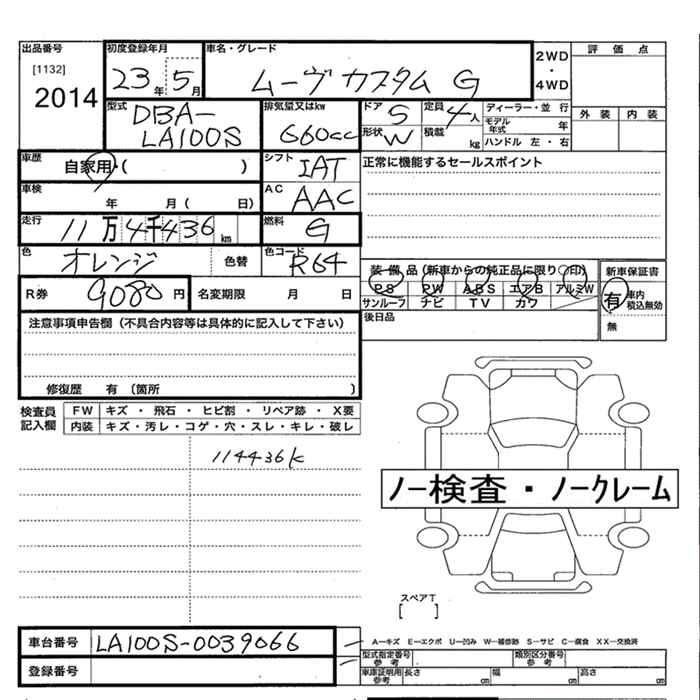 出品番号 初度登録年月 車名・グレード 2WD・4WD 評価点
[1132] 2014 23年 5月 ムーヴ カスタム G
型式 DBA-LA100S 排気量又はkw 660cc ドア 5 定員 4人 ディーラー・並行 外装 内装
形状 W 積載 kg モデル年式 年 ハンドル 左・右
車歴 自家用・( ) シフト IAT 正常に機能するセールスポイント
車検 年 月( 日) AC AAC
走行 11万4千436km 燃料 G
色 オレンジ 色替 色コード R64
装備品(新車からの純正品に限り○印) 新車保証書
R券 9080円 名変期限 月 日 PS PW ABS エアB アルミW 有 車内積込無効
サンルーフ ナビ TV カワ 無
注意事項申告欄(不具合内容等は具体的に記入して下さい) 後日品
修復歴 有〔箇所 〕
検査員記入欄 FW キズ・飛石・ヒビ割・リペア跡・X要
内装 キズ・汚レ・コゲ・穴・スレ・キレ・破レ
114436k
ノー検査・ノークレーム
スペアT
[ ]
車台番号 LA100S-0039066 A-キズ E-エクボ U-凹み W-補修跡 S-サビ C-腐食 XX-交換済
登録番号 型式指定番号参考 類別区分番号参考
車庫証明用参考 長さ cm 幅 cm 高さ cm